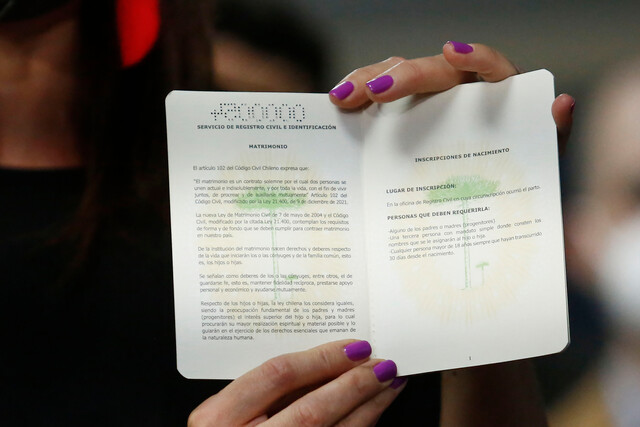 SERVICIO DE REGISTRO CIVIL E IDENTIFICACIÓN
MATRIMONIO
El artículo 102 del Código Civil Chileno expresa que:
"El matrimonio es un contrato solemne por el cual dos personas se
unen actual e indisolublemente, y por toda la vida, con el fin de vivir
juntos, de procrear y de auxiliarse mutuamente" Artículo 102 del
Código Civil, modificado por la Ley 21.400, de 9 de diciembre de 2021.
La nueva Ley de Matrimonio Civil de 7 de mayo de 2004 y el Código
Civil, modificado por la citada Ley 21.400, contemplan los requisitos
de forma y de fondo que se deben cumplir para contraer matrimonio en
nuestro país.
De la institución del matrimonio nacen derechos y deberes respecto
de la vida que iniciarán los o las cónyuges y de la familia común, esto
es, los hijos o hijas.
Se señalan como deberes de los o las cónyuges, entre otros, el de
guardarse fe, esto es, mantener fidelidad recíproca, prestarse apoyo
personal y económico y ayudarse mutuamente.
Respecto de los hijos o hijas, la ley chilena los considera iguales,
siendo la preocupación fundamental de los padres y madres
(progenitores) el interés superior del hijo o hija, para lo cual
procurarán su mayor realización espiritual y material posible y lo
guiarán en el ejercicio de los derechos esenciales que emanan de
la naturaleza humana.
INSCRIPCIONES DE NACIMIENTO
LUGAR DE INSCRIPCIÓN:
En la oficina de Registro Civil en cuya circunscripción ocurrió el parto
PERSONAS QUE DEBEN REQUERIRLA:
Alguno de los padres o madres (progenitores)
Una tercera persona con mandato simple donde consten los
nombres que se le asignarán al hijo o hija
Cualquier persona mayor de 18 años siempre que hayan transcurrido
30 días desde el nacimiento.
1